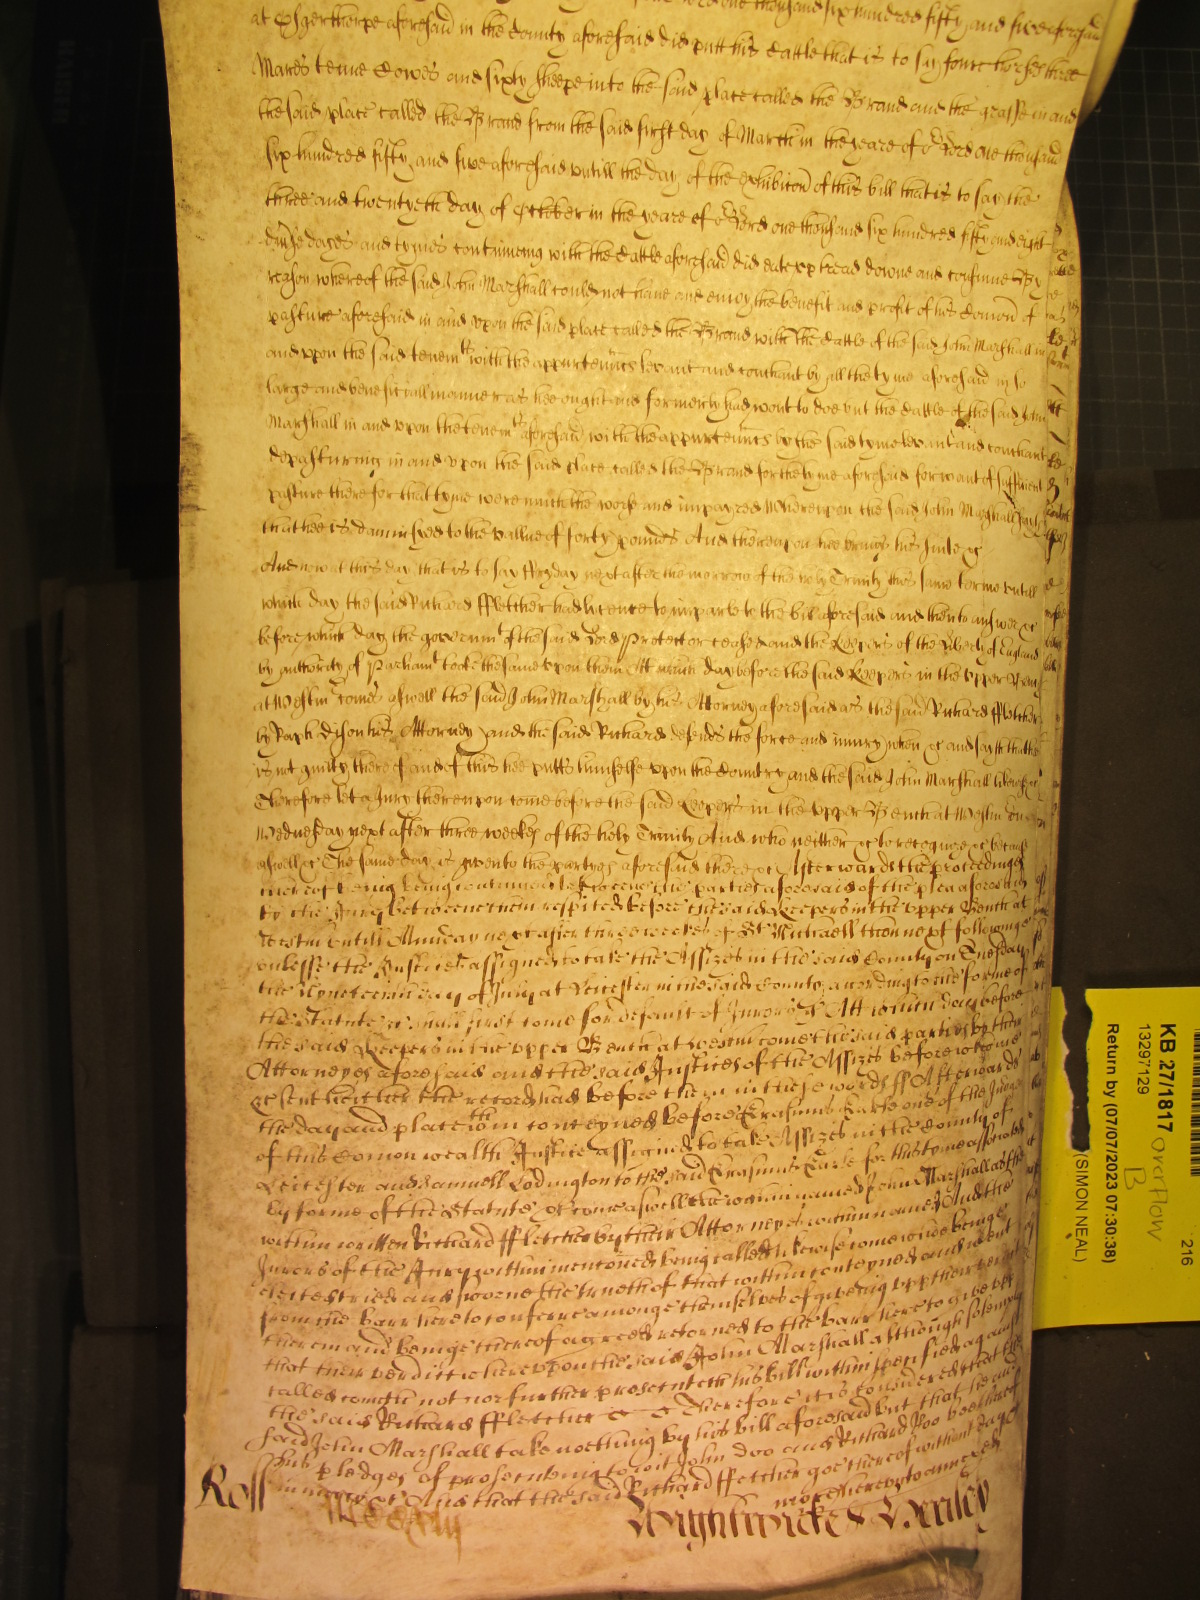 one thousand six hundred fifty and five aforesaid
at Osgerthorpe aforesaid in the County aforesaid did putt his Cattle that is to say foure horses three
Mares tenne Cowes and sixty sheepe into the said place called the Brand and the grasse in and
the said place called the Brand from the said first day of March in the yeare of or Lord one thousand
six hundred fifty and five aforesaid untill the day of the exhibicon of this bill that is to say the
three and twentyeth day of October in the yeare of or Lord one thousand six hundred fifty and eight
divse dayes and tymes continueing with the Cattle aforesaid did eate upp tread downe and consume By
reason whereof the said John Marshall could not have and enioy the benefit and profit of his Comon of
pasture aforesaid in and upon the said place called the Brand with the Cattle of the said John Marshall in
and upon the said tenemts with the appurtenncs levant and couchant by all the tyme aforesaid in so
large and beneficiall manner as hee ought and formerly had wont to doe but the Cattle of the said John
Marshall in and upon the tenemts aforesaid with the appurtenncs by the said tyme levant and couchant
depasturing in and upon the said place called the Brand for the tyme aforesaid for want of sufficient
pasture there for that tyme were much the worse and impayred Whereupon the said John Marshall saith
that hee is damnifyed to the vallue of forty pounds And thereupon hee brings his suite &c
And now at this day that is to say ffryday next after the morrow of the holy Trinity this same terme untill
which day the said Richard ffletcher had licence to imparle to the bill aforesaid and then to answer &c
before which day the governmt of the said Lord Protector ceased and the Keepers of the liberty of England
by authority of Parliamt tooke the same upon them Att which day before the said Keepers in the upper Bench
at Westmr comes aswell the said John Marshall by his Attorney aforesaid as the said Richard ffletcher
by Raph Dison his Attorney and the said Richard defends the force and iniury when &c and saith that hee
is not guilty thereof and of this hee putts himselfe upon the Country and the said John Marshall likewise &c
Therefore let a Jury thereupon come before the said Keepers in the upper Bench at Westm on
Wednesday next after three weekes of the holy Trinity And who neither &c to recognize &c because
aswell &c The same day is given to the partyes aforesaid there &c Afterwards the proceedings
thereof being continued betweene the parties aforesaid of the plea aforesaid
by the Jury betweene them respited before the said Keepers in the upper Bench at
Westm untill Munday next after three weekes of St Michaell then next following
unlesse the Justices assigned to take the Assizes in the said County on Tuesday
the Nyneteenth day of July at Leicester in the said County according to the forme of
the Statute &c shall first come for default of Jurors &c Att which day before
the said Keepers in the upper Bench at Westm come the said parties by their
Attorneyes aforesaid and the said Justices of the Assizes before whome
&c sent hither their record had before them in these words ss Afterwards
the day and place within conteyned before Erasmus Earle one of the Judges
of this Comonwealth Justice assigned to take Assizes in the County of
Leicester and Samuell Lodington to the said Erasmus Earle for this tyme associated
by forme of the Statute &c come aswell the within named John Marshall as the
within written Richard ffletcher by their Attorneyes within named And the
Jurors of the Jury within mentioned being called likewise come who being
elected tried and sworne the trueth of that within conteyned and went
from the barr here to conferre amonge themselves of giveing upp their verdict
therein and being thereof agreed retorned to the barr here to give upp
that their verdict whereupon the said John Marshall although solemnly
called cometh not nor further prosecuteth his bill within specified against
the said Richard ffletcher &c Therefore it is considered that the
said John Marshall take noething by his bill aforesaid but that he and
his pledges of prosecuting to wit John Doo and Richard Roo bee thereof
in mercy &c And that the said Richard ffletcher goe thereof without day &c
more hereunto annexed
Roll
Wightwicke &
KB 27/1817
13297129
overflow
B
216
Return by (07/07/2023 07:30:38)
(SIMON NEAL)